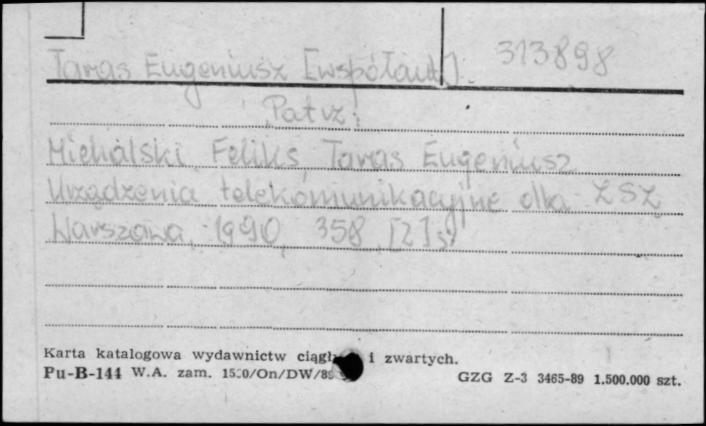 Taras Eugeniusz [współaut.] 313898
Patrz:
Michalski Feliks, Taras Eugeniusz
Urządzenia telekomunikacyjne dla ZSZ
Warszawa, 1990, 358, [2] s.
Karta katalogowa wydawnictw i zwartych.
Pu-B-144 W.A. zam.
GZG Z-3 3465-89 1.500.000 szt.